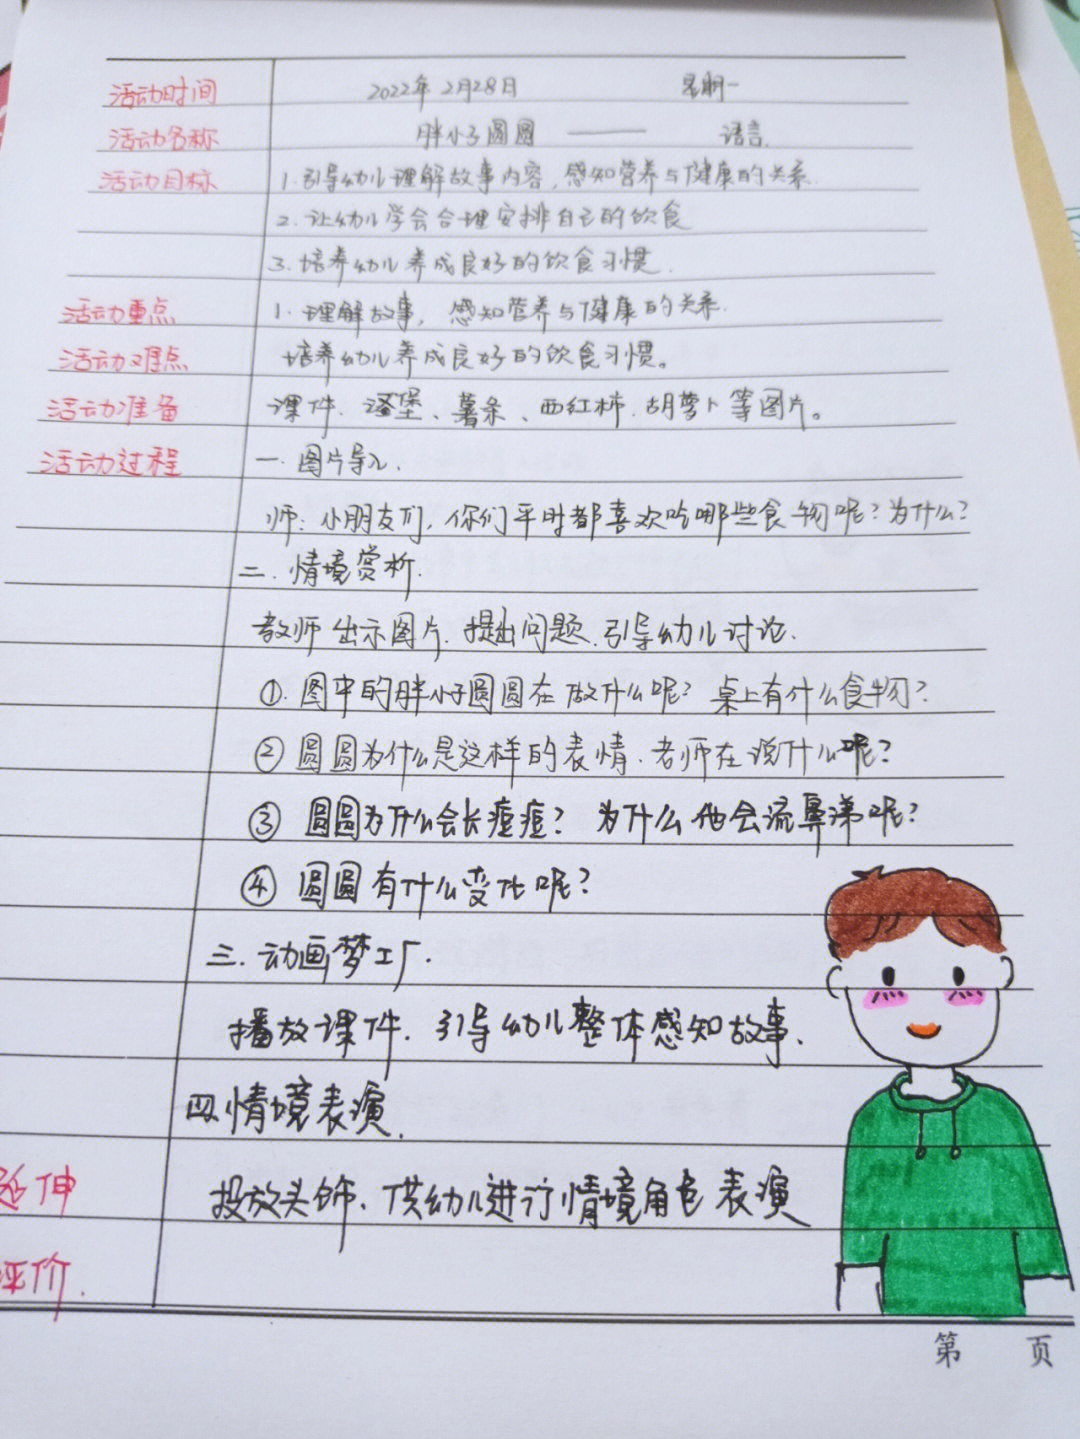 活动时间 2022年2月28日 星期一
活动名称 胖小子圆圆 —— 语言.
活动目标 1.引导幼儿理解故事内容,感知营养与健康的关系.
2.让幼儿学会合理安排自己的饮食
3.培养幼儿养成良好的饮食习惯.
活动重点 1.理解故事,感知营养与健康的关系.
活动难点 培养幼儿养成良好的饮食习惯。
活动准备 课件、汉堡、薯条、西红柿、胡萝卜等图片。
活动过程 一.图片导入.
师:小朋友们,你们平时都喜欢吃哪些食物呢?为什么?
二.情境赏析.
教师出示图片.提出问题.引导幼儿讨论.
①.图中的胖小子圆圆在做什么呢?桌上有什么食物?
②圆圆为什么是这样的表情.老师在说什么呢?
③圆圆为什么会长痘痘?为什么他会流鼻涕呢?
④圆圆有什么变化呢?
三.动画梦工厂.
播放课件.引导幼儿整体感知故事.
四.情境表演.
延伸 投放头饰、供幼儿进行情境角色表演
评价.
第 页